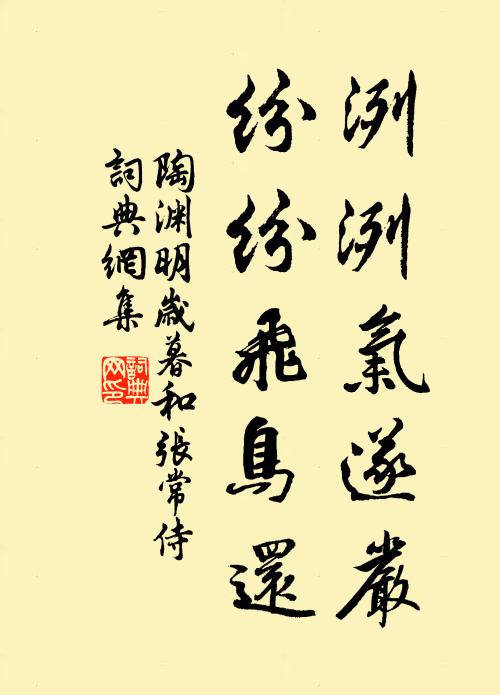 洌洌氣遂嚴
紛紛飛鳥還
陶渊明歲暮和張常侍
詞典網集
詞典网印